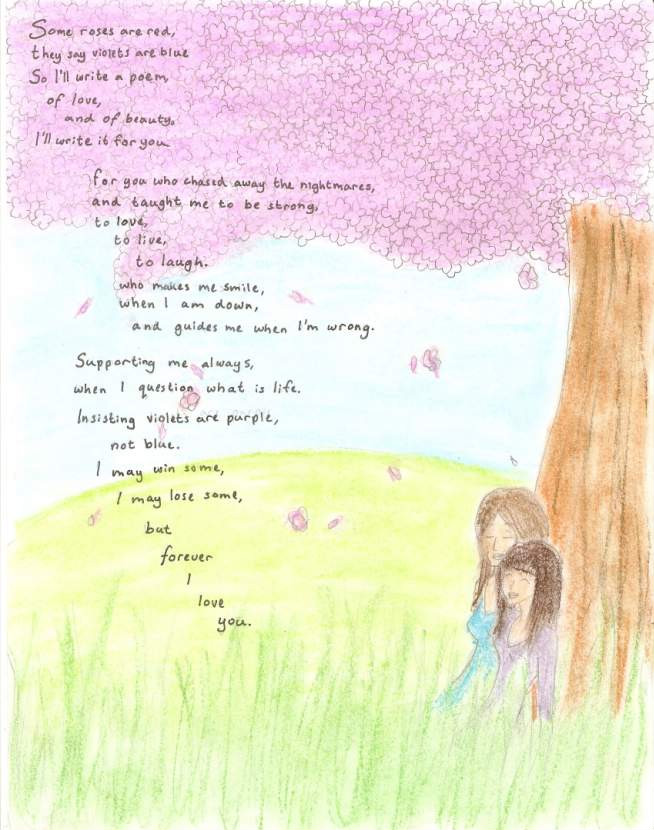 Some roses are red,
they say violets are blue
So I'll write a poem,
of love,
and of beauty.
I'll write it for you
for you who chased away the nightmares,
and taught me to be strong,
to love,
to live,
to laugh.
who makes me smile,
when I am down,
and guides me when I'm wrong.
Supporting me always,
when I question what is life.
Insisting violets are purple,
not blue.
I may win some,
I may lose some,
but
forever
I
love
you.